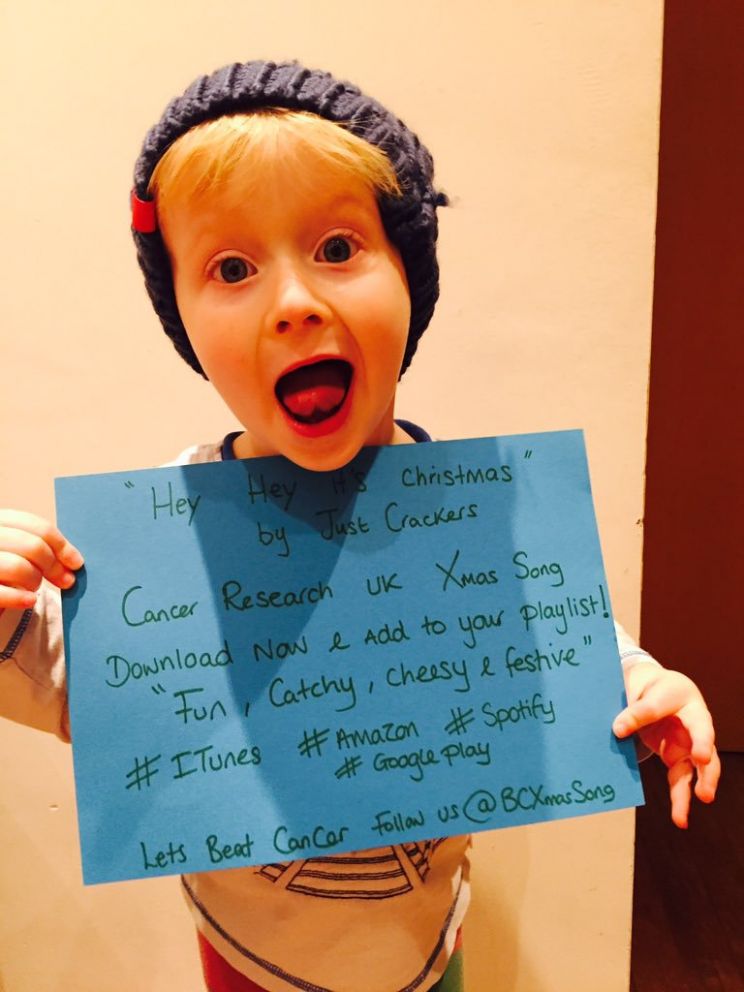 "Hey Hey It's Christmas"
by Just Crackers
Cancer Research UK Xmas Song
Download Now & Add to your playlist!
"Fun, Catchy, cheesy & festive"
# ITunes # Amazon # Spotify
# Google play
Lets Beat Cancer Follow us @BCXmasSong